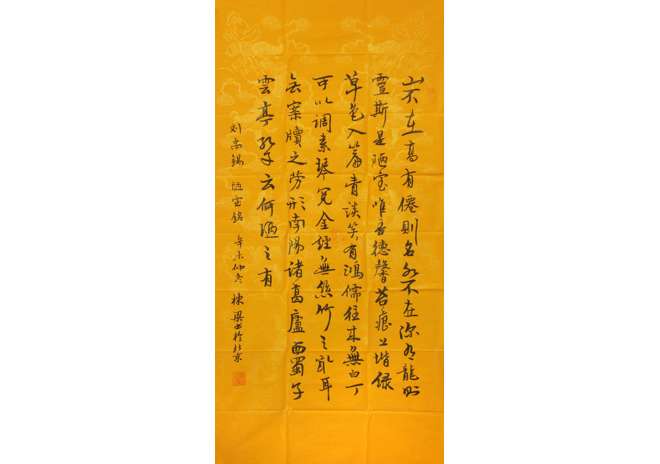 山不在高有僊則名水不在深有龍則
靈斯是陋室唯吾德馨苔痕上堦緑
草色入簾青談笑有鴻儒往來無白丁
可以調素琴閱金經無絲竹之亂耳
無案牘之勞形南陽諸葛廬西蜀子
雲亭孔子云何陋之有
刘禹锡 陋室銘 辛未仲 棟梁书於北京